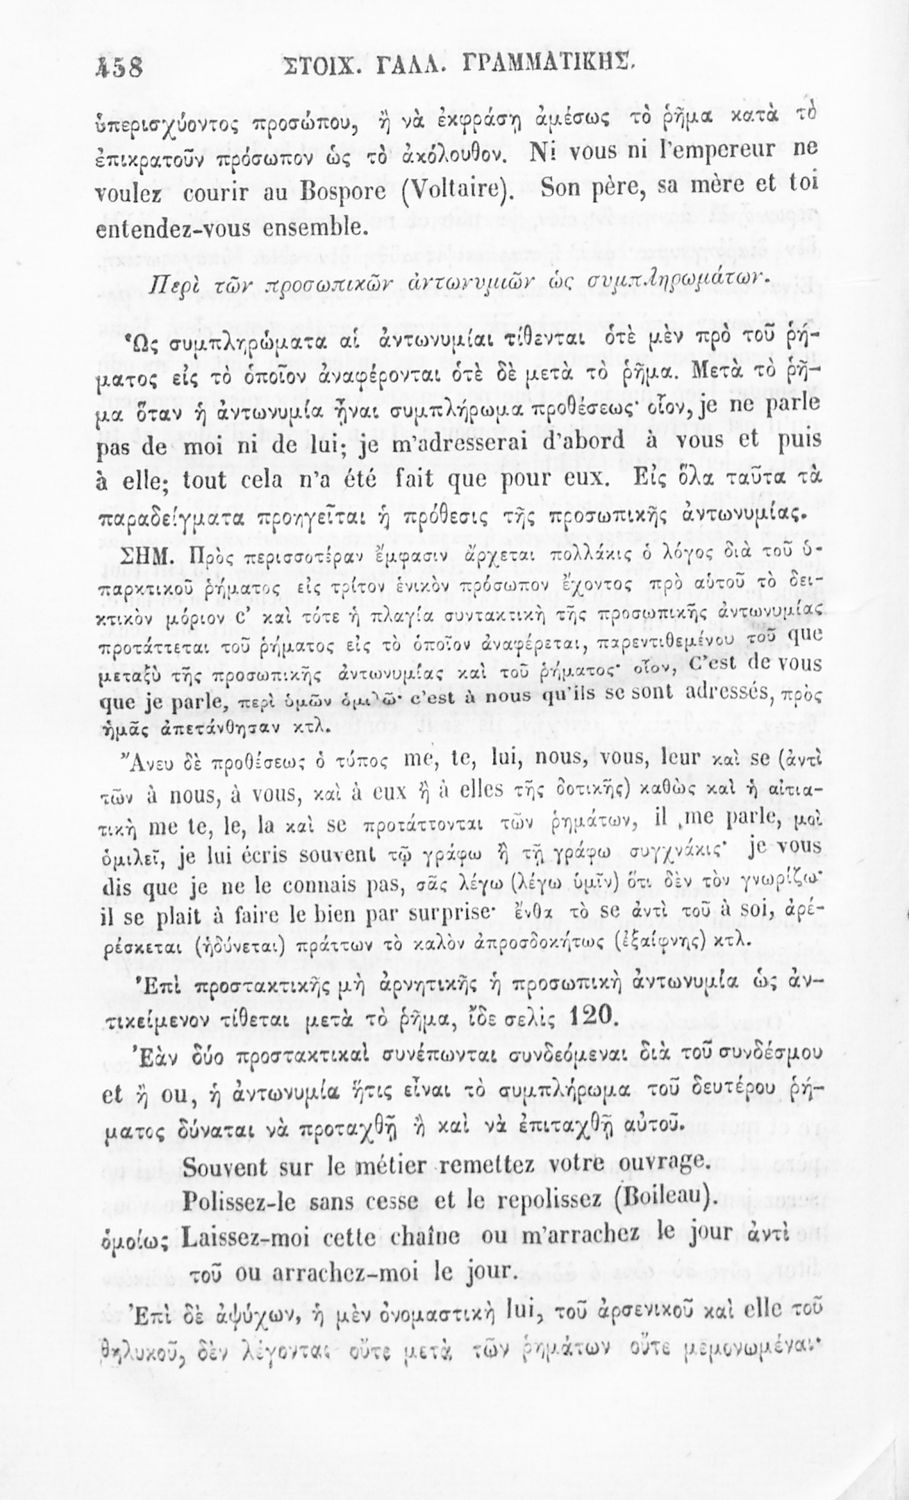 458 ΣΤΟΙΧ. ΓΑΛΛ. ΓΡΑΜΜΑΤΙΚΗΣ.
ὑπερισχύοντος προσώπου, ἢ νὰ ἐκφράσῃ ἀμέσως τὸ ῥῆμα κατὰ τὸ
ἐπικρατοῦν πρόσωπον ὡς τὸ ἀκόλουθον. Ni vous ni l'empereur ne
voulez courir au Bospore (Voltaire). Son père, sa mère et toi
entendez-vous ensemble.
Περὶ τῶν προσωπικῶν ἀντωνυμιῶν ὡς συμπληρωμάτων.
Ὡς συμπληρώματα αἱ ἀντωνυμίαι τίθενται ὁτὲ μὲν πρὸ τοῦ ῥή-
ματος εἰς τὸ ὁποῖον ἀναφέρονται ὁτὲ δὲ μετὰ τὸ ῥῆμα. Μετὰ τὸ ῥῆ-
μα ὅταν ἡ ἀντωνυμία ᾖναι συμπλήρωμα προθέσεως· οἷον, je ne parle
pas de moi ni de lui; je m'adresserai d'abord à vous et puis
à elle; tout cela n'a été fait que pour eux. Εἰς ὅλα ταῦτα τὰ
παραδείγματα προηγεῖται ἡ πρόθεσις τῆς προσωπικῆς ἀντωνυμίας.
ΣΗΜ. Πρὸς περισσοτέραν ἔμφασιν ἄρχεται πολλάκις ὁ λόγος διὰ τοῦ ὑ-
παρκτικοῦ ῥήματος εἰς τρίτον ἑνικὸν πρόσωπον ἔχοντος πρὸ αὑτοῦ τὸ δει-
κτικὸν μόριον c' καὶ τότε ἡ πλαγία συντακτικὴ τῆς προσωπικῆς ἀντωνυμίας
προτάττεται τοῦ ῥήματος εἰς τὸ ὁποῖον ἀναφέρεται, παρεντιθεμένου τοῦ que
μεταξὺ τῆς προσωπικῆς ἀντωνυμίας καὶ τοῦ ῥήματος· οἷον, C'est de vous
que je parle, περὶ ὑμῶν ὁμιλῶ· c'est à nous qu'ils se sont adressés, πρὸς
ἡμᾶς ἀπετάνθησαν κτλ.
Ἄνευ δὲ προθέσεως ὁ τύπος me, te, lui, nous, vous, leur καὶ se (ἀντὶ
τῶν à nous, à vous, καὶ à eux ἢ à elles τῆς δοτικῆς) καθὼς καὶ ἡ αἰτια-
τικὴ me te, le, la καὶ se προτάττονται τῶν ῥημάτων, il me parle, μοὶ
ὁμιλεῖ, je lui écris souvent τῷ γράφω ἢ τῇ γράφω συγχνάκις· je vous
dis que je ne le connais pas, σᾶς λέγω (λέγω ὑμῖν) ὅτι δὲν τὸν γνωρίζω·
il se plait à faire le bien par surprise· ἔνθα τὸ se ἀντὶ τοῦ à soi, ἀρέ-
ρέσκεται (ἡδύνεται) πράττων τὸ καλὸν ἀπροσδοκήτως (ἐξαίφνης) κτλ.
Ἐπὶ προστακτικῆς μὴ ἀρνητικῆς ἡ προσωπικὴ ἀντωνυμία ὡς ἀν-
τικείμενον τίθεται μετὰ τὸ ῥῆμα, ἴδε σελὶς 120.
Ἐὰν δύο προστακτικαὶ συνέπωνται συνδεόμεναι διὰ τοῦ συνδέσμου
et ἢ ou, ἡ ἀντωνυμία ἥτις εἶναι τὸ συμπλήρωμα τοῦ δευτέρου ῥή-
ματος δύναται νὰ προταχθῇ ἢ καὶ νὰ ἐπιταχθῇ αὐτοῦ.
Souvent sur le métier remettez votre ouvrage.
Polissez-le sans cesse et le repolissez (Boileau).
ὁμοίως Laissez-moi cette chaîne ou m'arrachez le jour ἀντὶ
τοῦ ou arrachez-moi le jour.
Ἐπὶ δὲ ἀψύχων, ἡ μὲν ὀνομαστικὴ lui, τοῦ ἀρσενικοῦ καὶ elle τοῦ
θηλυκοῦ, δὲν λέγονται οὔτε μετὰ τῶν ῥημάτων οὔτε μεμονωμέναι·